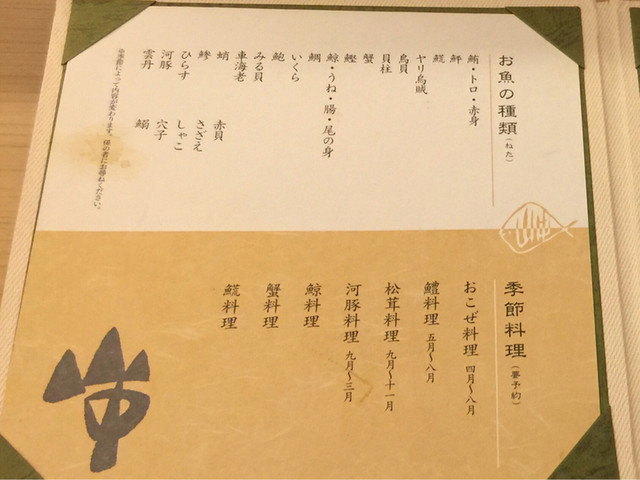 お魚の種類（ねた）
鮪・トロ・赤身
鮃
ヤリ烏賊
鳥貝
貝柱
蟹
鰹
鯨・うね・腸・尾の身
鯛
いくら
鮑
みる貝
車海老
蛸 赤貝
鯵 さざえ
ひらす しゃこ
河豚 穴子
雲丹 鰯
※季節によって内容が変わります。係の者にお尋ねください。
季節料理（要予約）
おこぜ料理 四月〜八月
鱧料理 五月〜八月
松茸料理 九月〜十一月
河豚料理 九月〜三月
鯨料理
蟹料理
料理